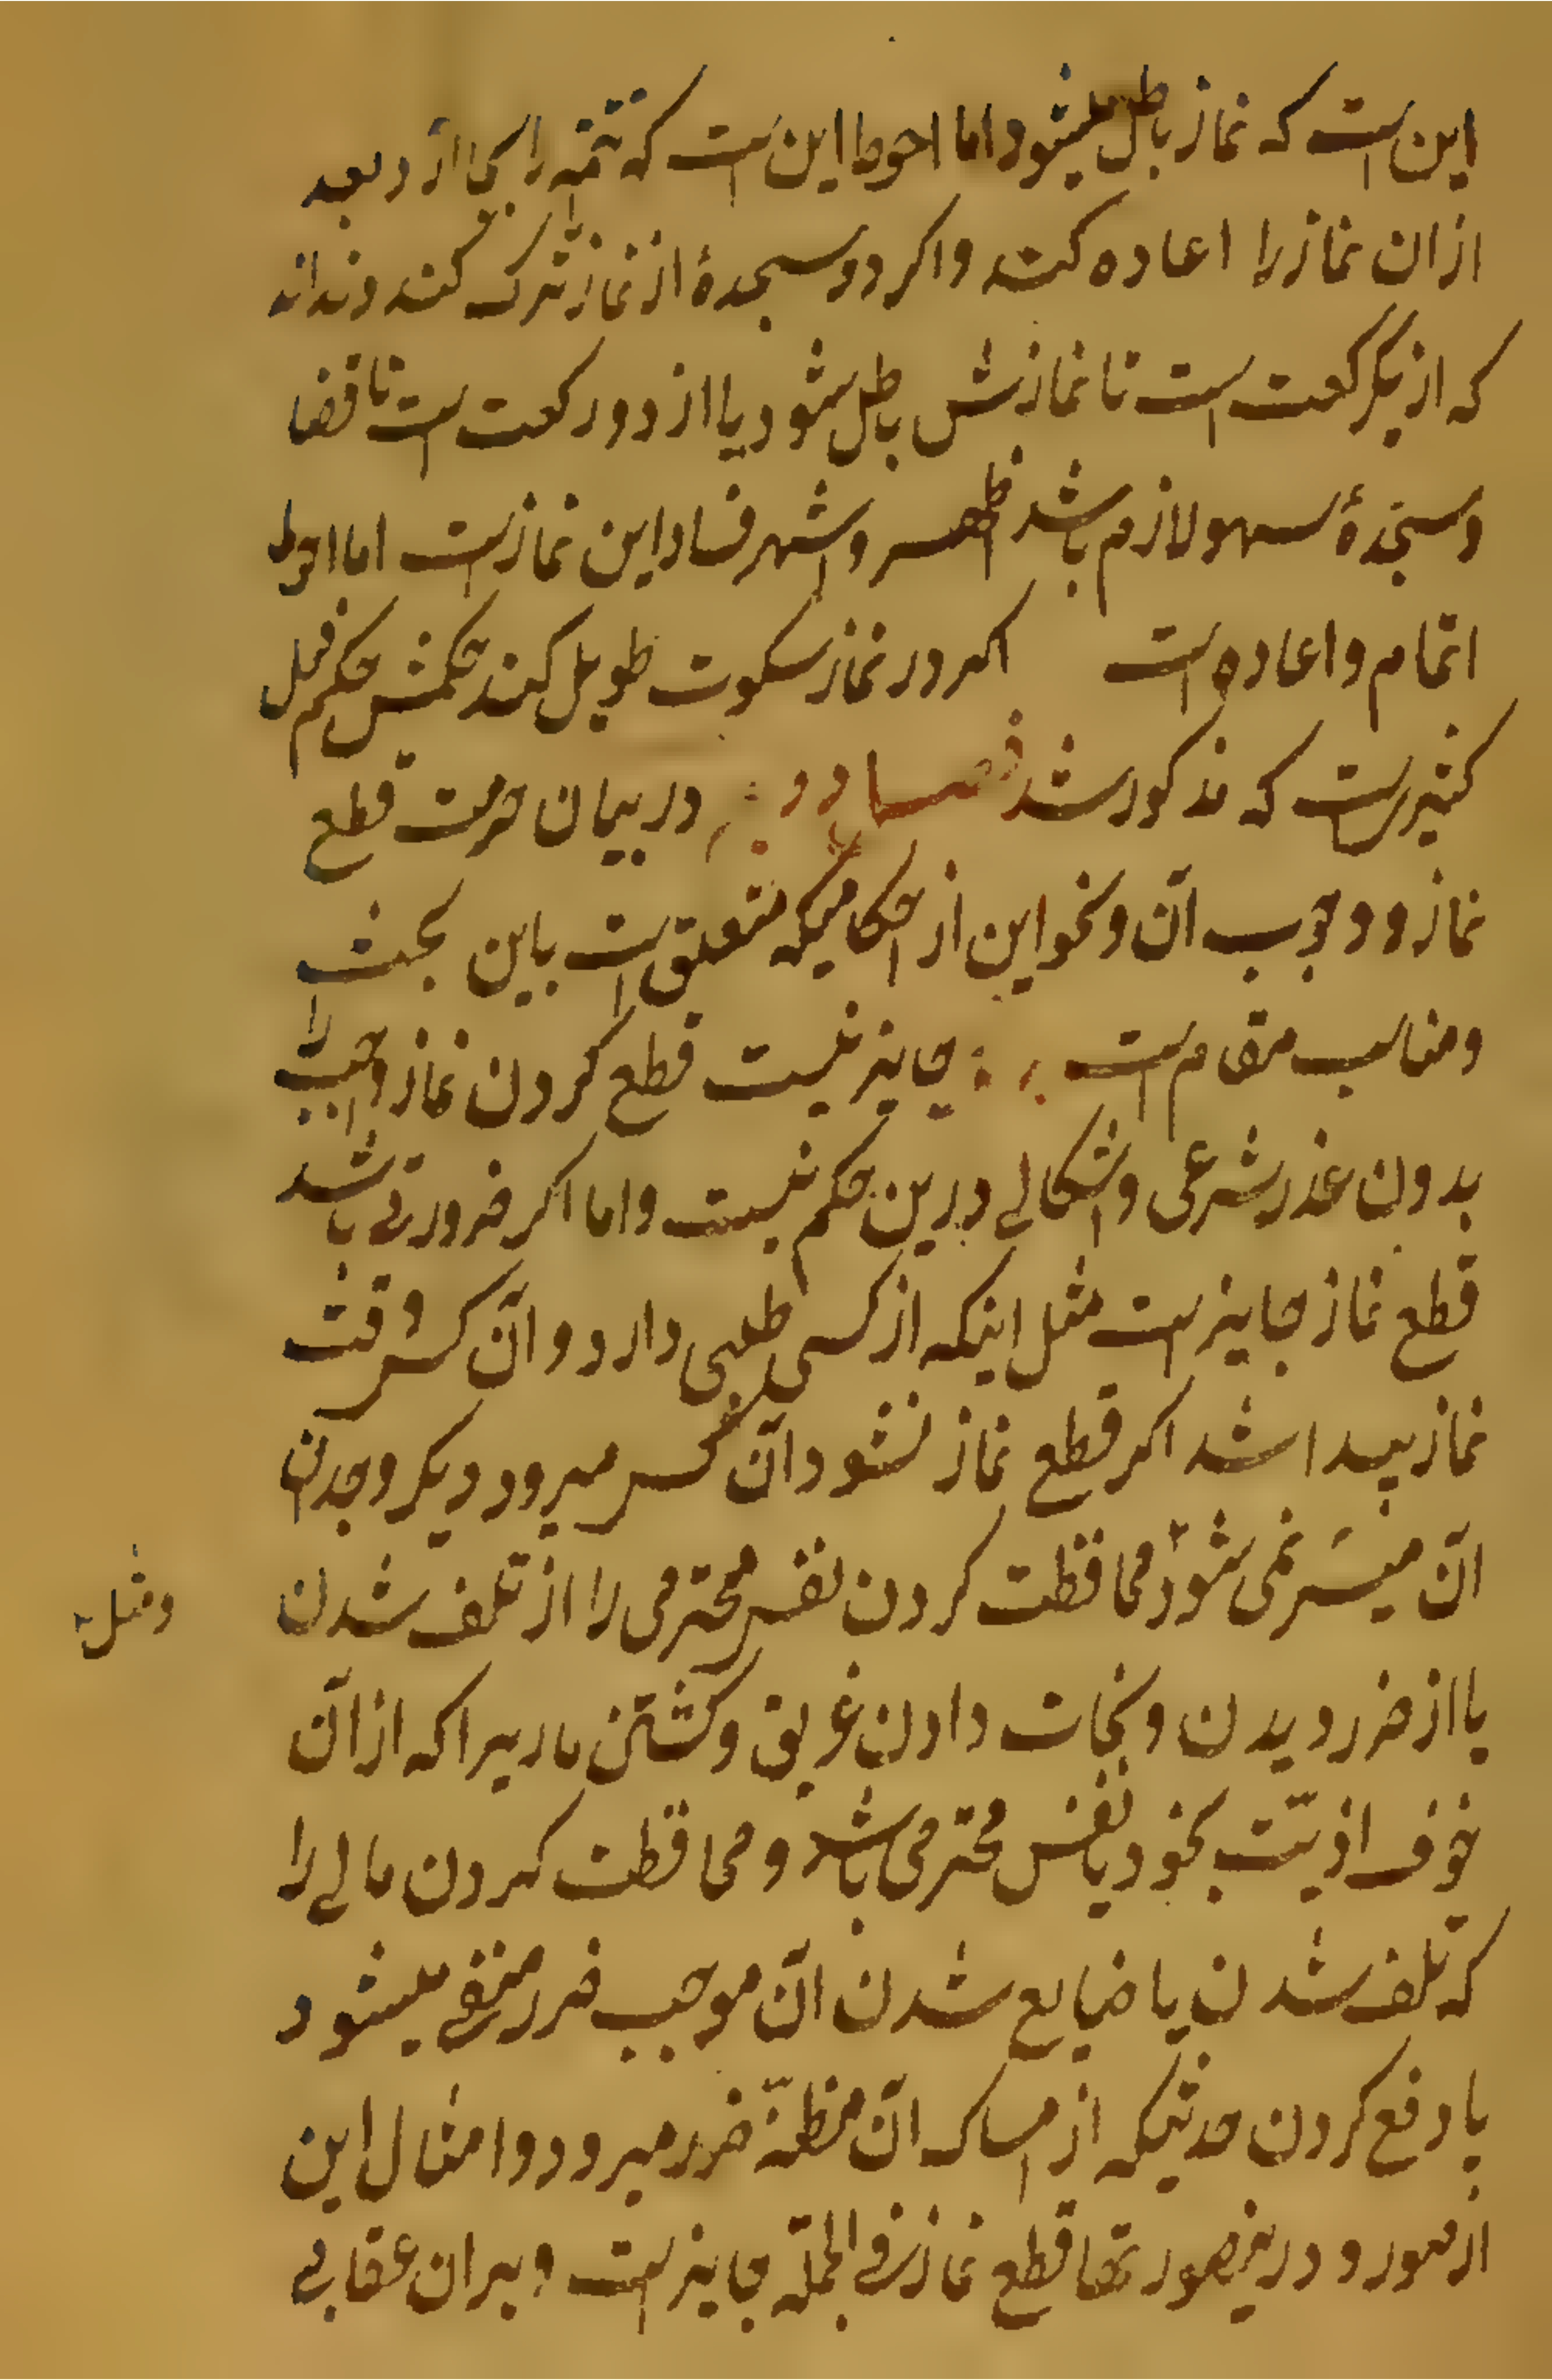 این است که نماز باطل میشود اما احوط این است که تتمه را بجا ارد و بعد
از ان نماز را اعاده کند و اکر دو سجدهٔ از نماز ترک کند و نداند
که از یکرکعت است تا نمازش باطل شود یا از دو رکعت است تا قضا
و سجدهٔ سهو لازم باشد اظهر و اشهر فساد این نماز است اما احوط
اتمام و اعاده است اکر در نماز سکوت طویل کند حکمش حکم فعل
کثیر است که مذکور شد در بیان حرمت قطع
نماز و وجوب آن و نحو این از احکامیکه متعلق است باین بحث
و مناسب مقام است جایز نیست قطع کردن نماز واجب را
بدون عذر شرعی و اشکالے درین حکم نیست و اما اکر ضرورتے باشد
قطع نماز جایز است مثل اینکه از کسی طلبی دارد و آن کس وقت
نماز پیدا شد اکر قطع نماز نشود آن کس میرود دیکر وجدان
آن میسّر نمی شود محافظت کردن نفس محترمی را از تلف شدن
ومثل
یا از ضرر دیدن و نجات دادن غریق و کشتن ماریرا که از آن
خوف اذیّت بخود یا نفس محترمی باشد و محافظت کردن مالے را
که تلف شدن یا ضایع شدن آن موجب ضرر میشود
یا دفع کردن حدثیکه از امساک آن مظنّهٔ ضرر میرود و امثال این
از امور و درینصورتها قطع نماز فے الجملّه جایز است و بران عقابے